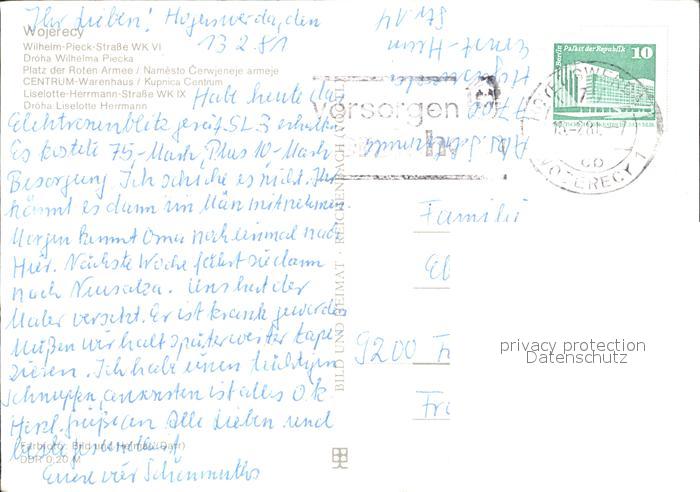 Ihr Lieben! Hoyerswerda, den
13.2.81
Wojerecy
Wilhelm-Pieck-Straße WK VI
Dróha Wilhelma Piecka
Platz der Roten Armee / Naměsto Čerwjeneje armeje
CENTRUM-Warenhaus / Kupnica Centrum
Liselotte-Herrmann-Straße WK IX
Dróha Liselotte Herrmann
Habe heute das
Elektronenblitzgerät SL 3 erhalten
Es kostete 75,- Mark, Plus 10,- Mark
Besorgung. Ich schicke es nicht. Ihr
könnt es dann im März mitnehmen.
Morgen kommt Oma noch einmal nach
Hier. Nächste Woche fährt sie dann
nach Neusalza. Uns hat der
Maler versetzt. Er ist krank geworden
Müßen wir halt später weiter tape-
zieren. Ich habe einen tüchtigen
Schnupfen, ansonsten ist alles O.k.
Herzl. grüßen Alle Lieben und
Farbfoto: Bild und Heimat (Darr)
DDR 0,20 M
Eure vier
BILD UND HEIMAT · REICHENBACH (VOGTL)
Abs.
Vorsorgen
Berlin Palast der Republik 10
WOJERECY 1
Familie
9200
privacy protection
Datenschutz